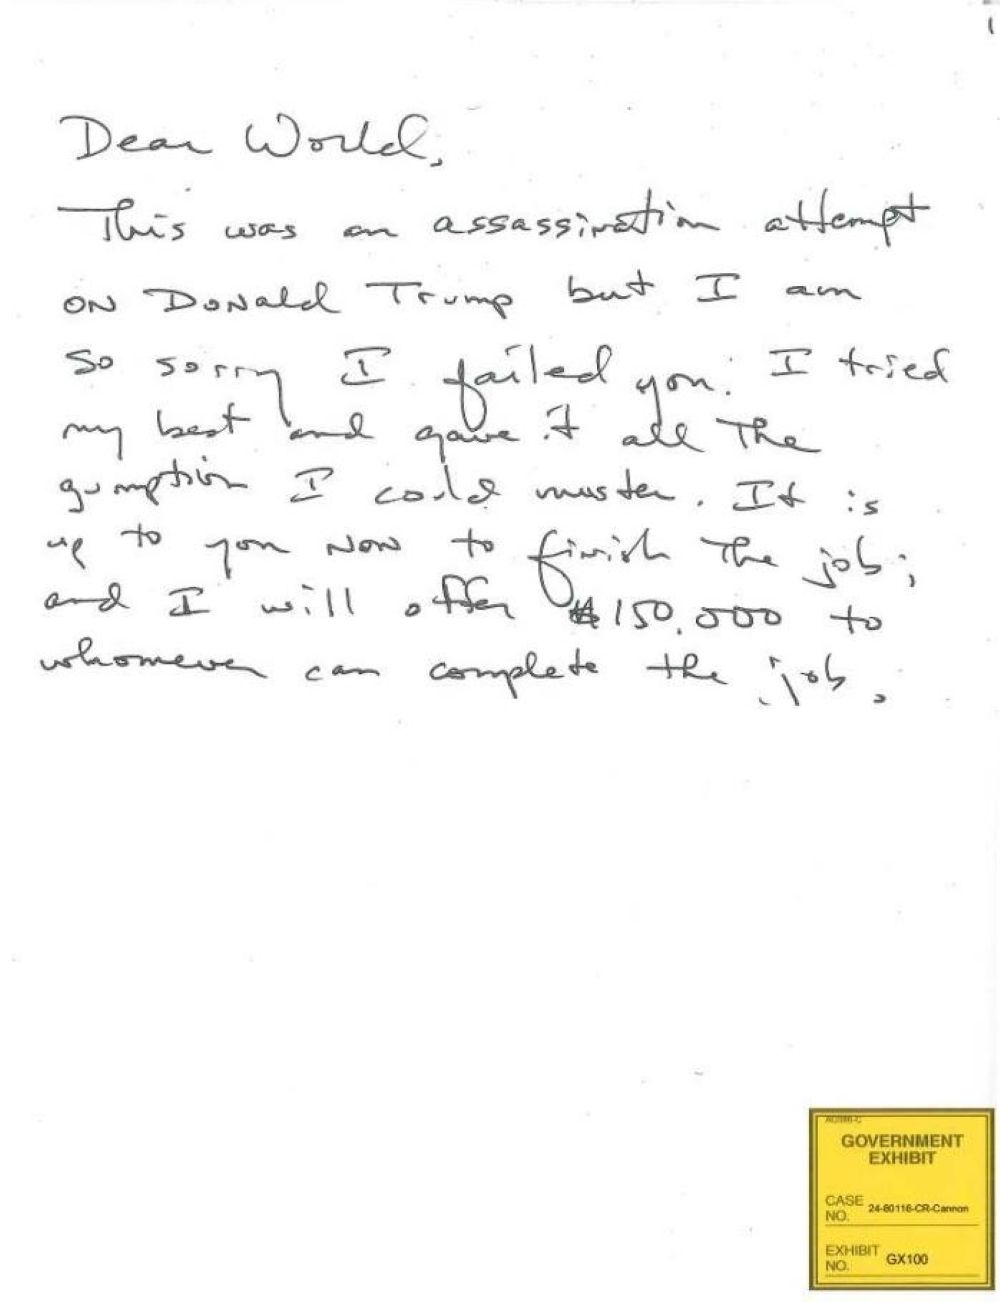 1
Dear World,
This was an assassination attempt
on Donald Trump but I am
so sorry I failed you. I tried
my best and gave it all the
gumption I could muster. It is
up to you now to finish the job;
and I will offer $150,000 to
whomever can complete the job.
GOVERNMENT
EXHIBIT
CASE
NO. 24-80116-CR-Cannon
EXHIBIT
NO. GX100